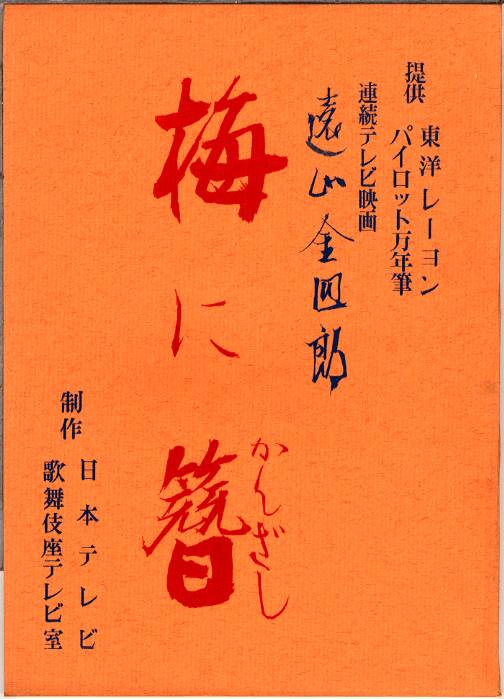 提供 東洋レーヨン
パイロット万年筆
連続テレビ映画
遠山金四郎
梅に簪
かんざし
制作 日本テレビ
歌舞伎座テレビ室